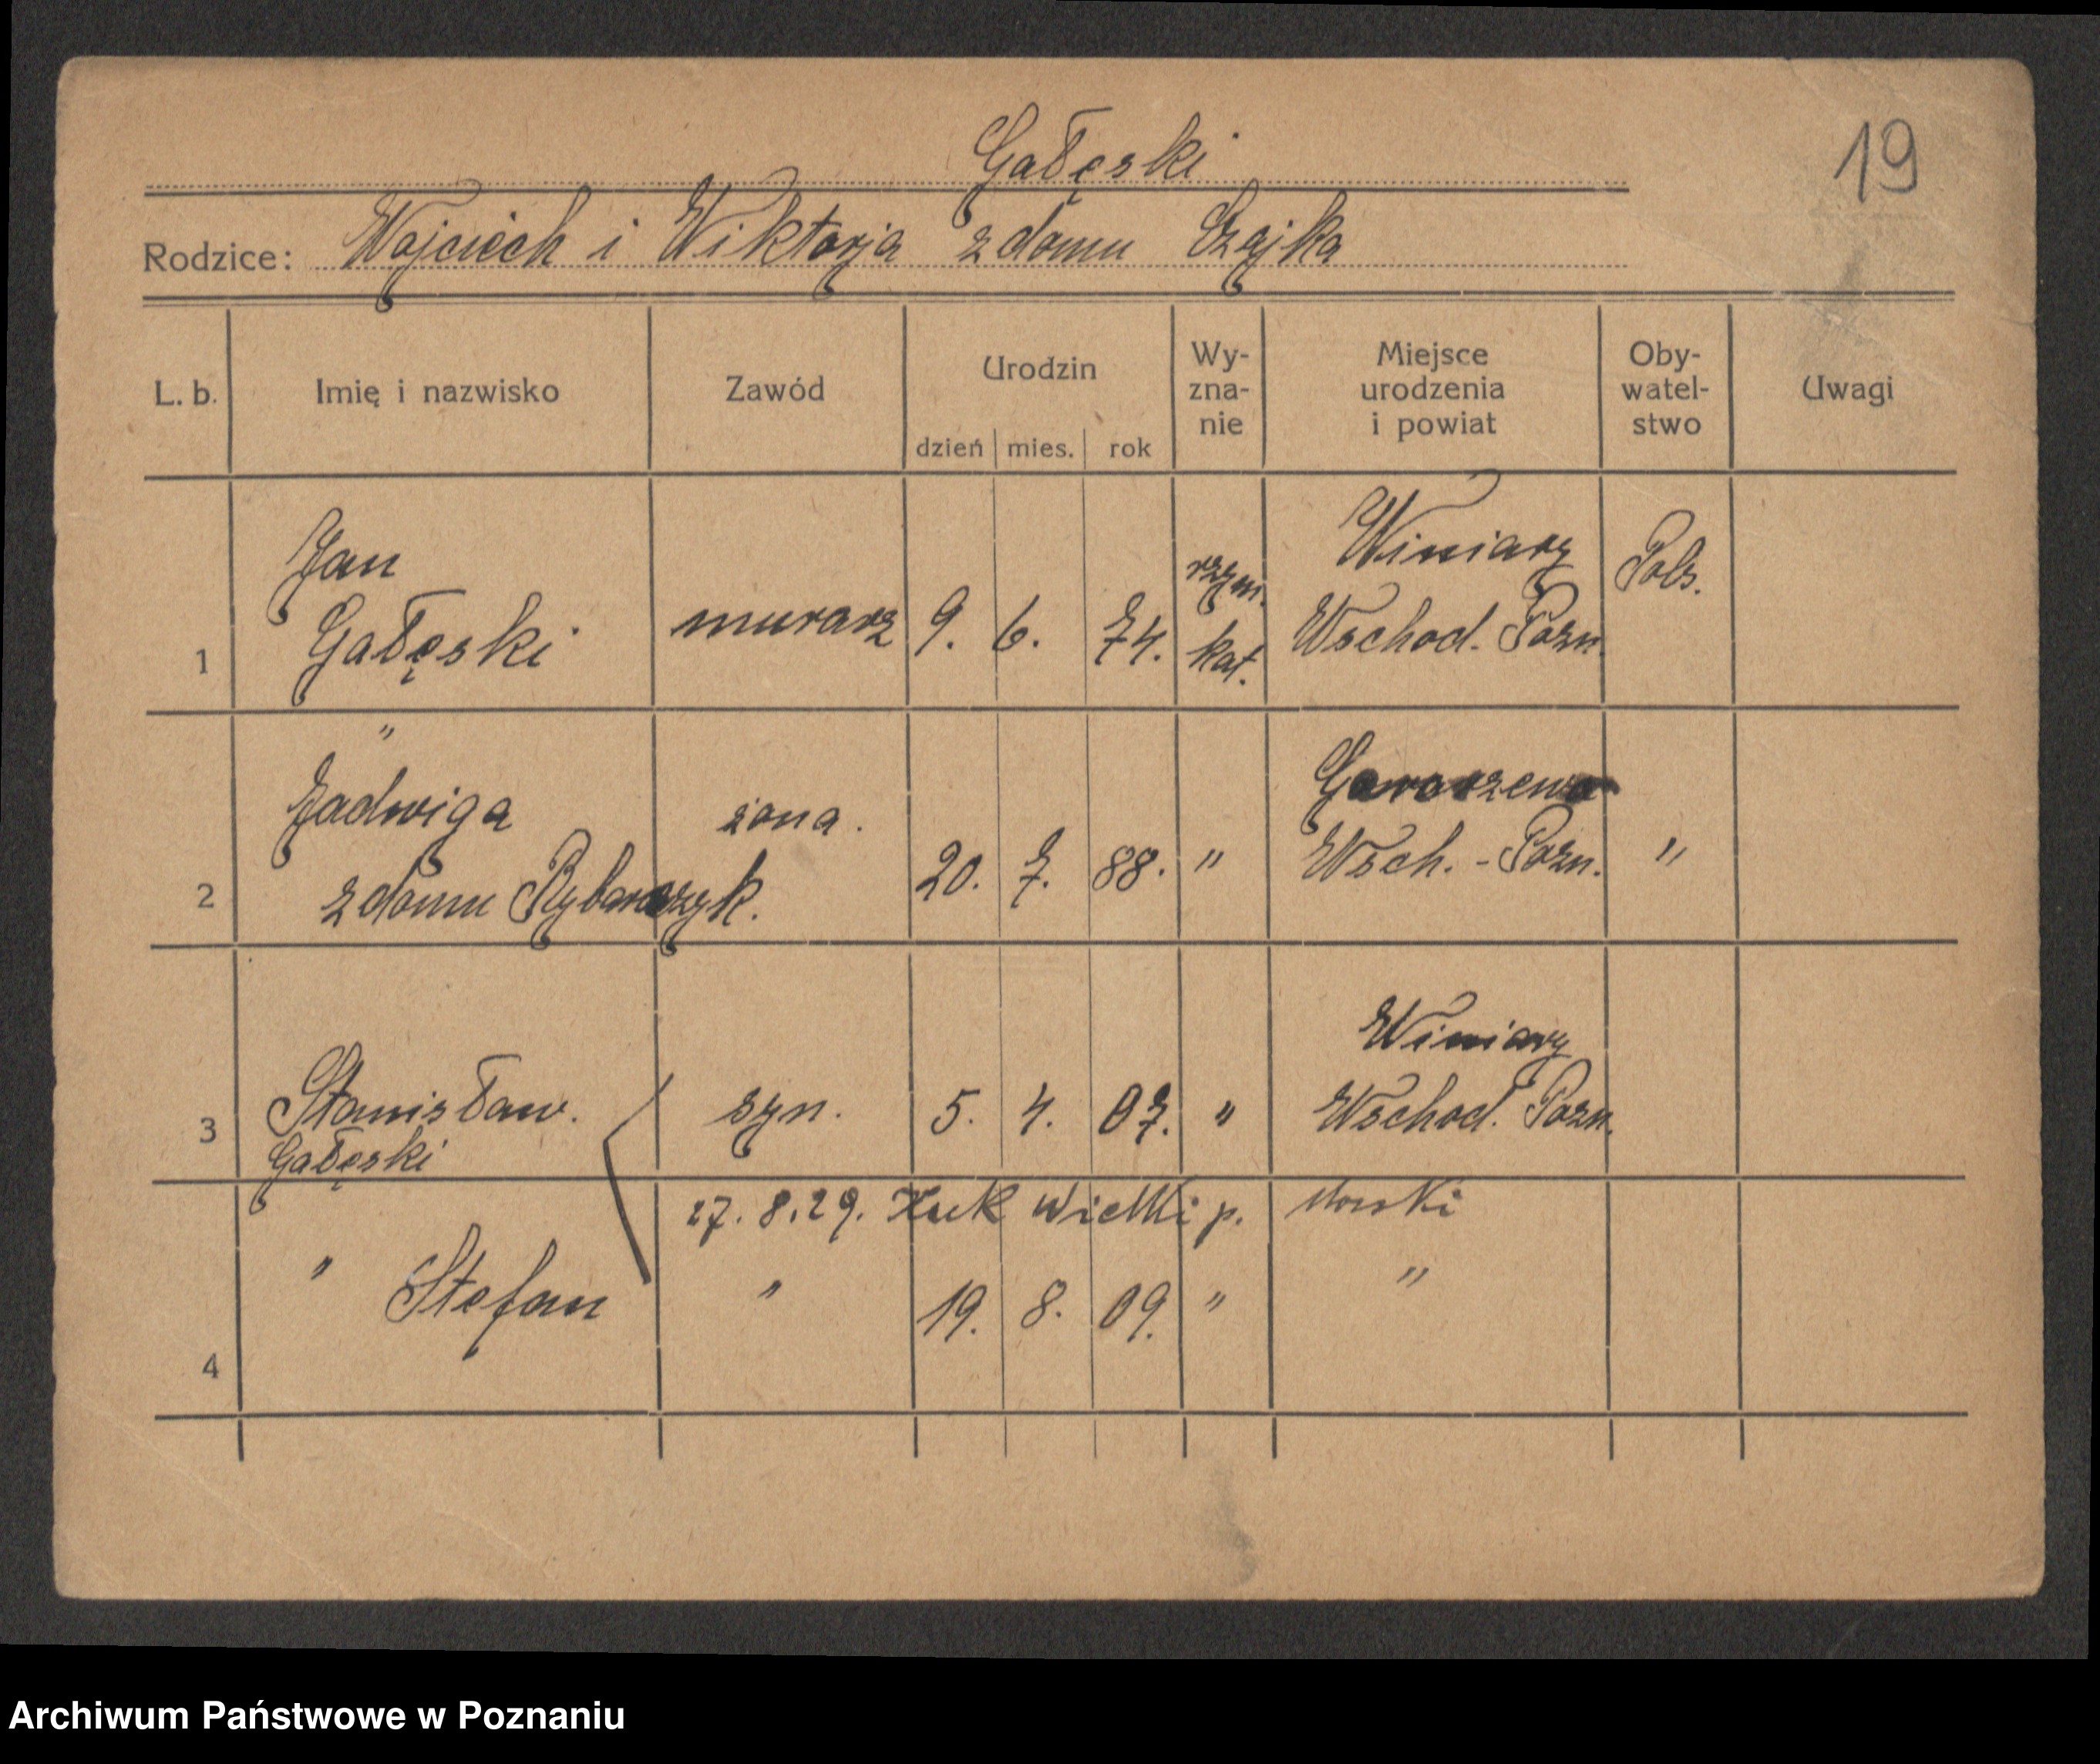 Gałęski
19
Rodzice: Wojciech i Wiktorja z domu Czajka
L. b.
Imię i nazwisko
Zawód
Urodzin
dzień mies. rok
Wy-
zna-
nie
Miejsce
urodzenia
i powiat
Oby-
watel-
stwo
Uwagi
1
Jan
Gałęski
murarz
9. 6. 74.
rzym.
kat.
Winiary
Wschod. Pozn.
Pols.
2
"
Jadwiga
z domu Rybarczyk.
żona.
20. 7. 88.
"
Wsch. - Pozn.
"
3
Stanisław.
Gałęski
syn.
5. 4. 07.
"
Winiary
Wschod. Pozn.
27. 8. 29. Wielki p.
4
" Stefan
"
19. 8. 09.
"
"
Archiwum Państwowe w Poznaniu